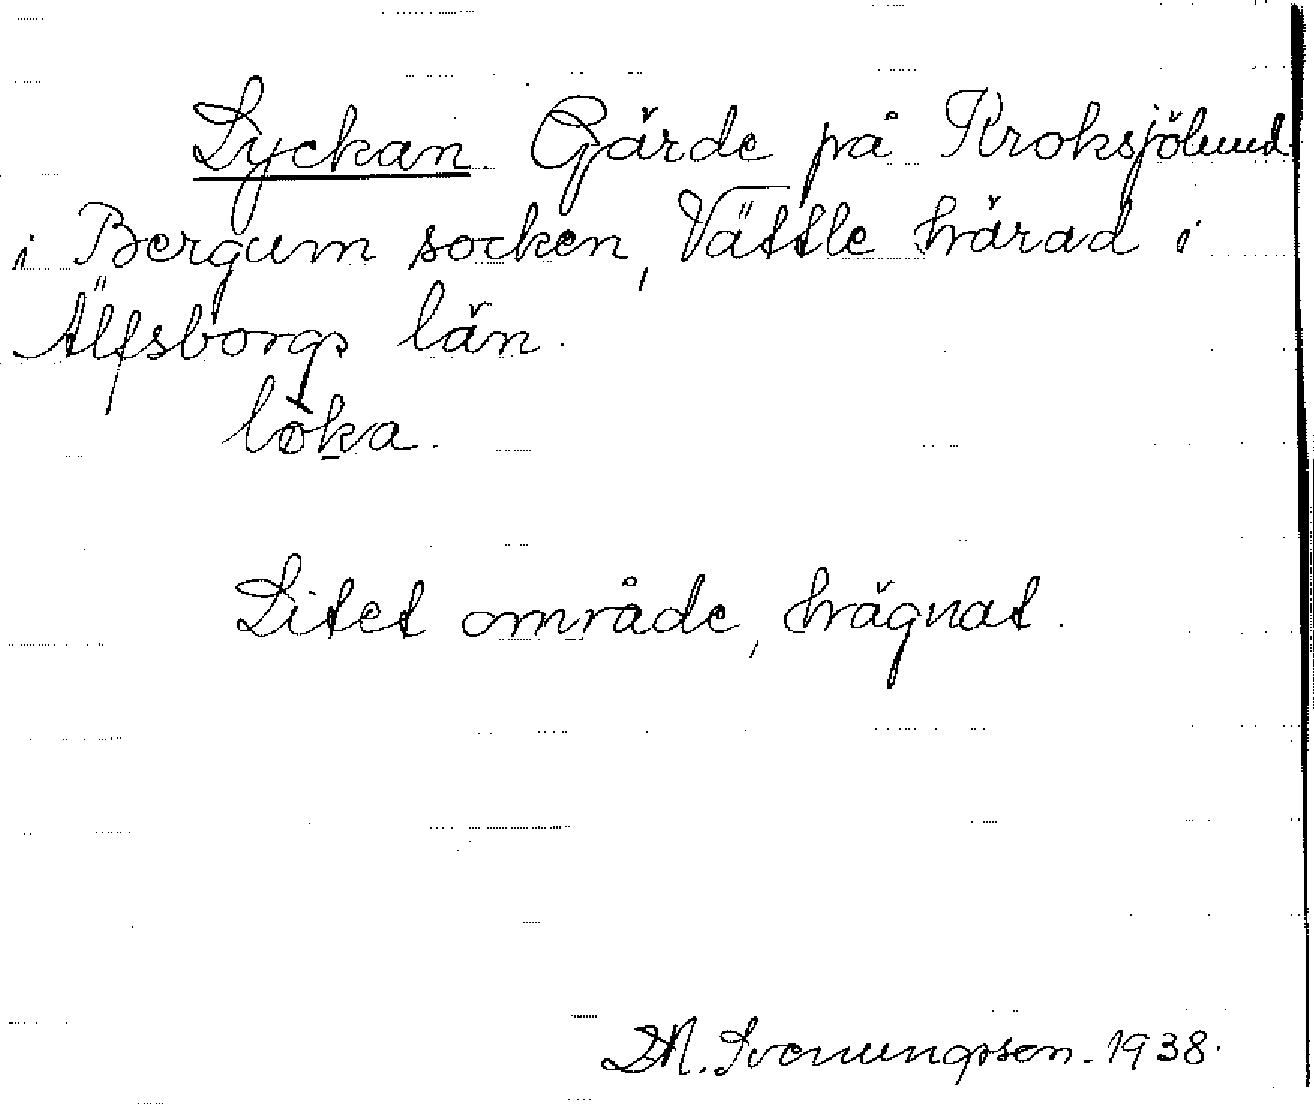 Lyckan. Gärde på Kroksjölund
i Bergum socken, Vättle härad i
Älfsborgs län.
löka.
Litet område, hägnat.
M. Svenungsson. 1938.